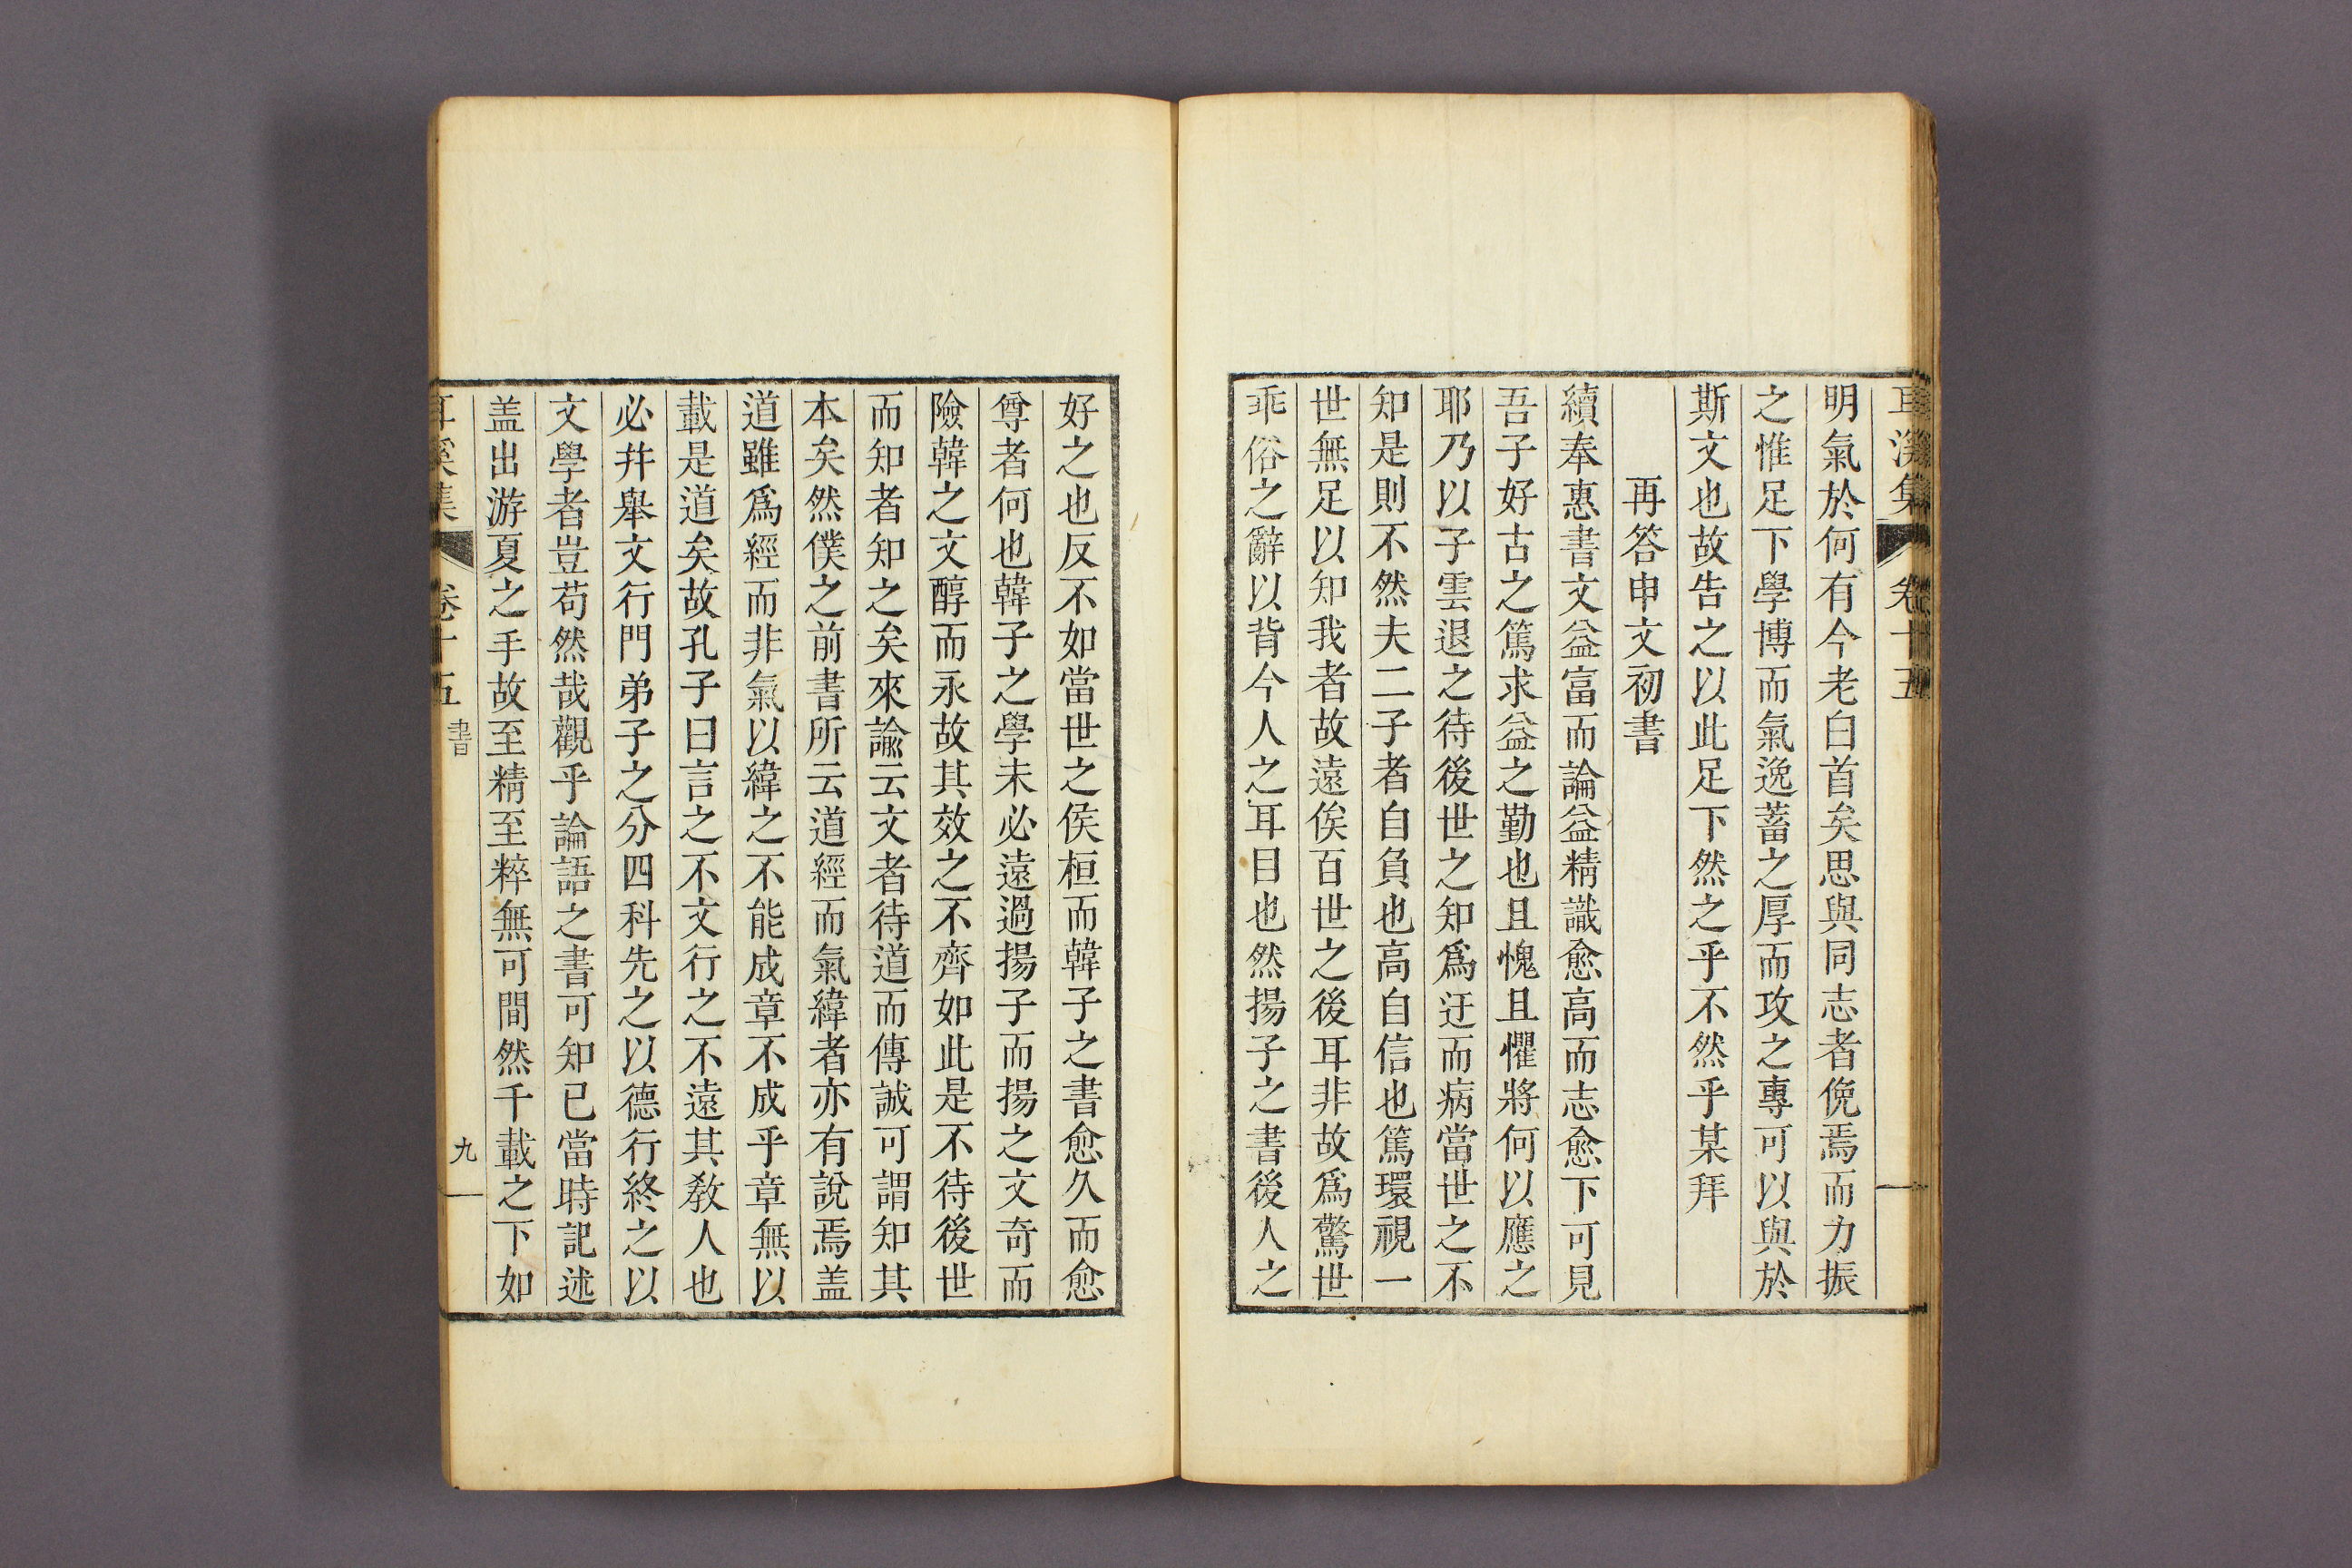 耳溪集 卷十五
明氣於何有今老白首矣思與同志者俛焉而力振
之惟足下學博而氣逸蓄之厚而攻之專可以與於
斯文也故告之以此足下然之乎不然乎某拜
再答申文初書
續奉惠書文益富而論益精識愈高而志愈下可見
吾子好古之篤求益之勤也且愧且懼將何以應之
耶乃以子雲退之待後世之知爲迂而病當世之不
知是則不然夫二子者自負也高自信也篤環視一
世無足以知我者故遠俟百世之後耳非故爲驚世
乖俗之辭以背今人之耳目也然揚子之書後人之
好之也反不如當世之侯桓而韓子之書愈久而愈
尊者何也韓子之學未必遠過揚子而揚之文奇而
險韓之文醇而永故其效之不齊如此是不待後世
而知者知之矣來諭云文者待道而傳誠可謂知其
本矣然僕之前書所云道經而氣緯者亦有說焉盖
道雖爲經而非氣以緯之不能成章不成乎章無以
載是道矣故孔子曰言之不文行之不遠其敎人也
必幷舉文行門弟子之分四科先之以德行終之以
文學者豈苟然哉觀乎論語之書可知已當時記述
盖出游夏之手故至精至粹無可間然千載之下如
耳溪集 卷十五 書 九